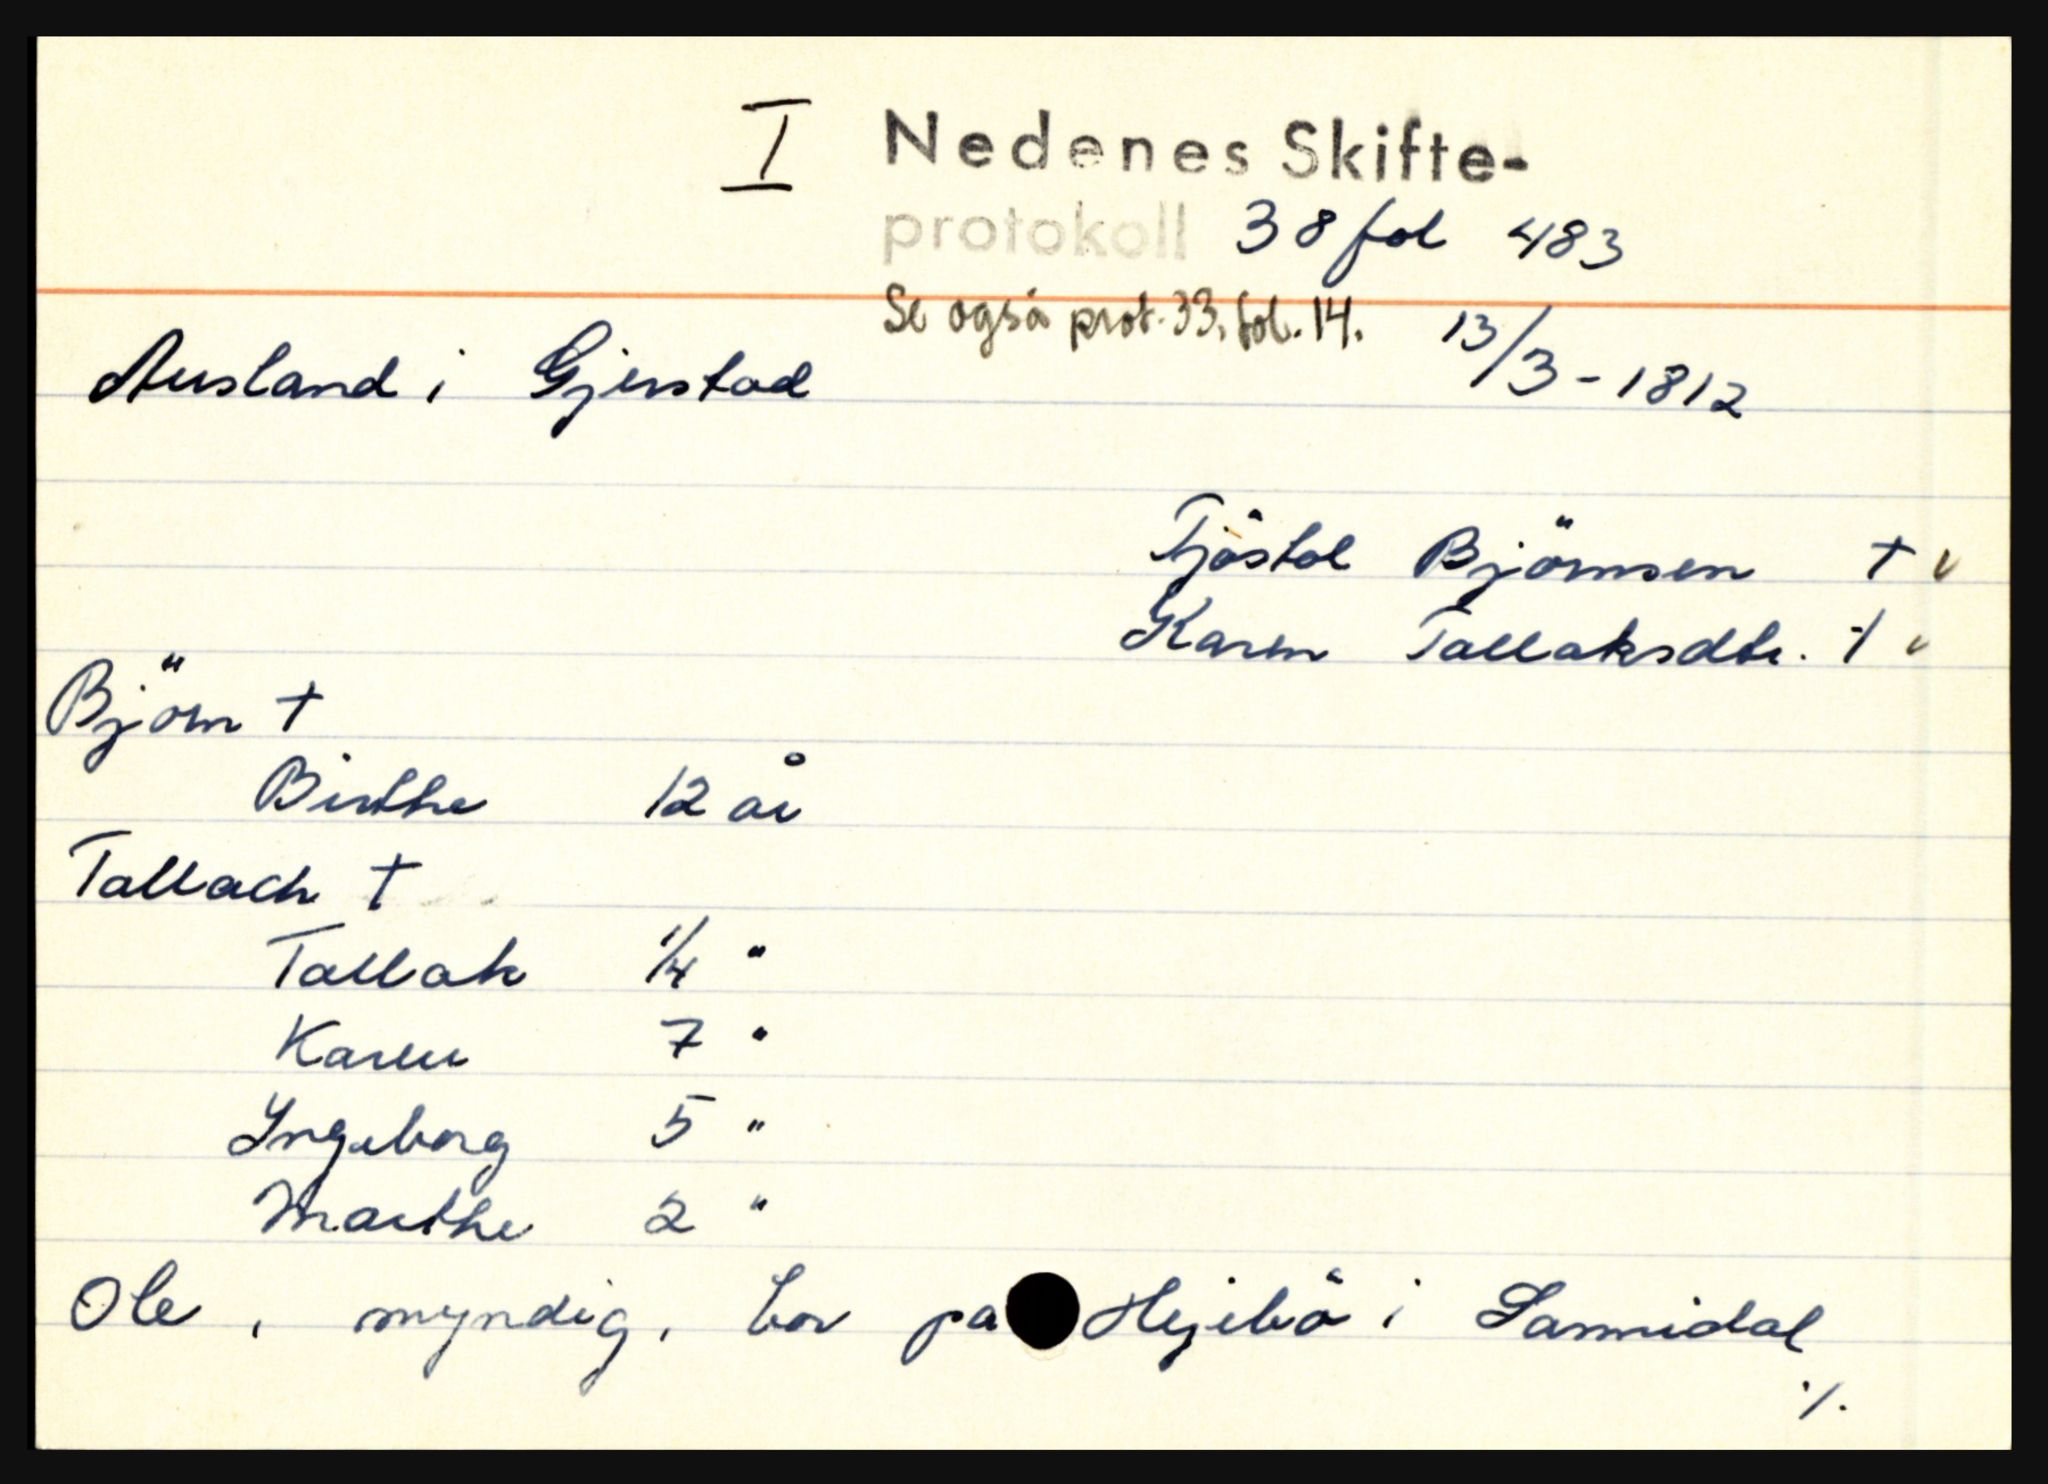 I Nedenes Skifte-
protokoll 38 fol 483
Se også prot. 33, fol. 14. 13/3-1812
Ausland i Gjerstad
Tjöstol Björnsen † v
Karen Tallaksdtr. † v
Björn †
Birthe 12 år
Tallach †
Tallak 1/4 "
Karen 7 "
Yngeborg 5 "
Marthe 2 "
Ole, myndig, bor på i Sannidal
./.